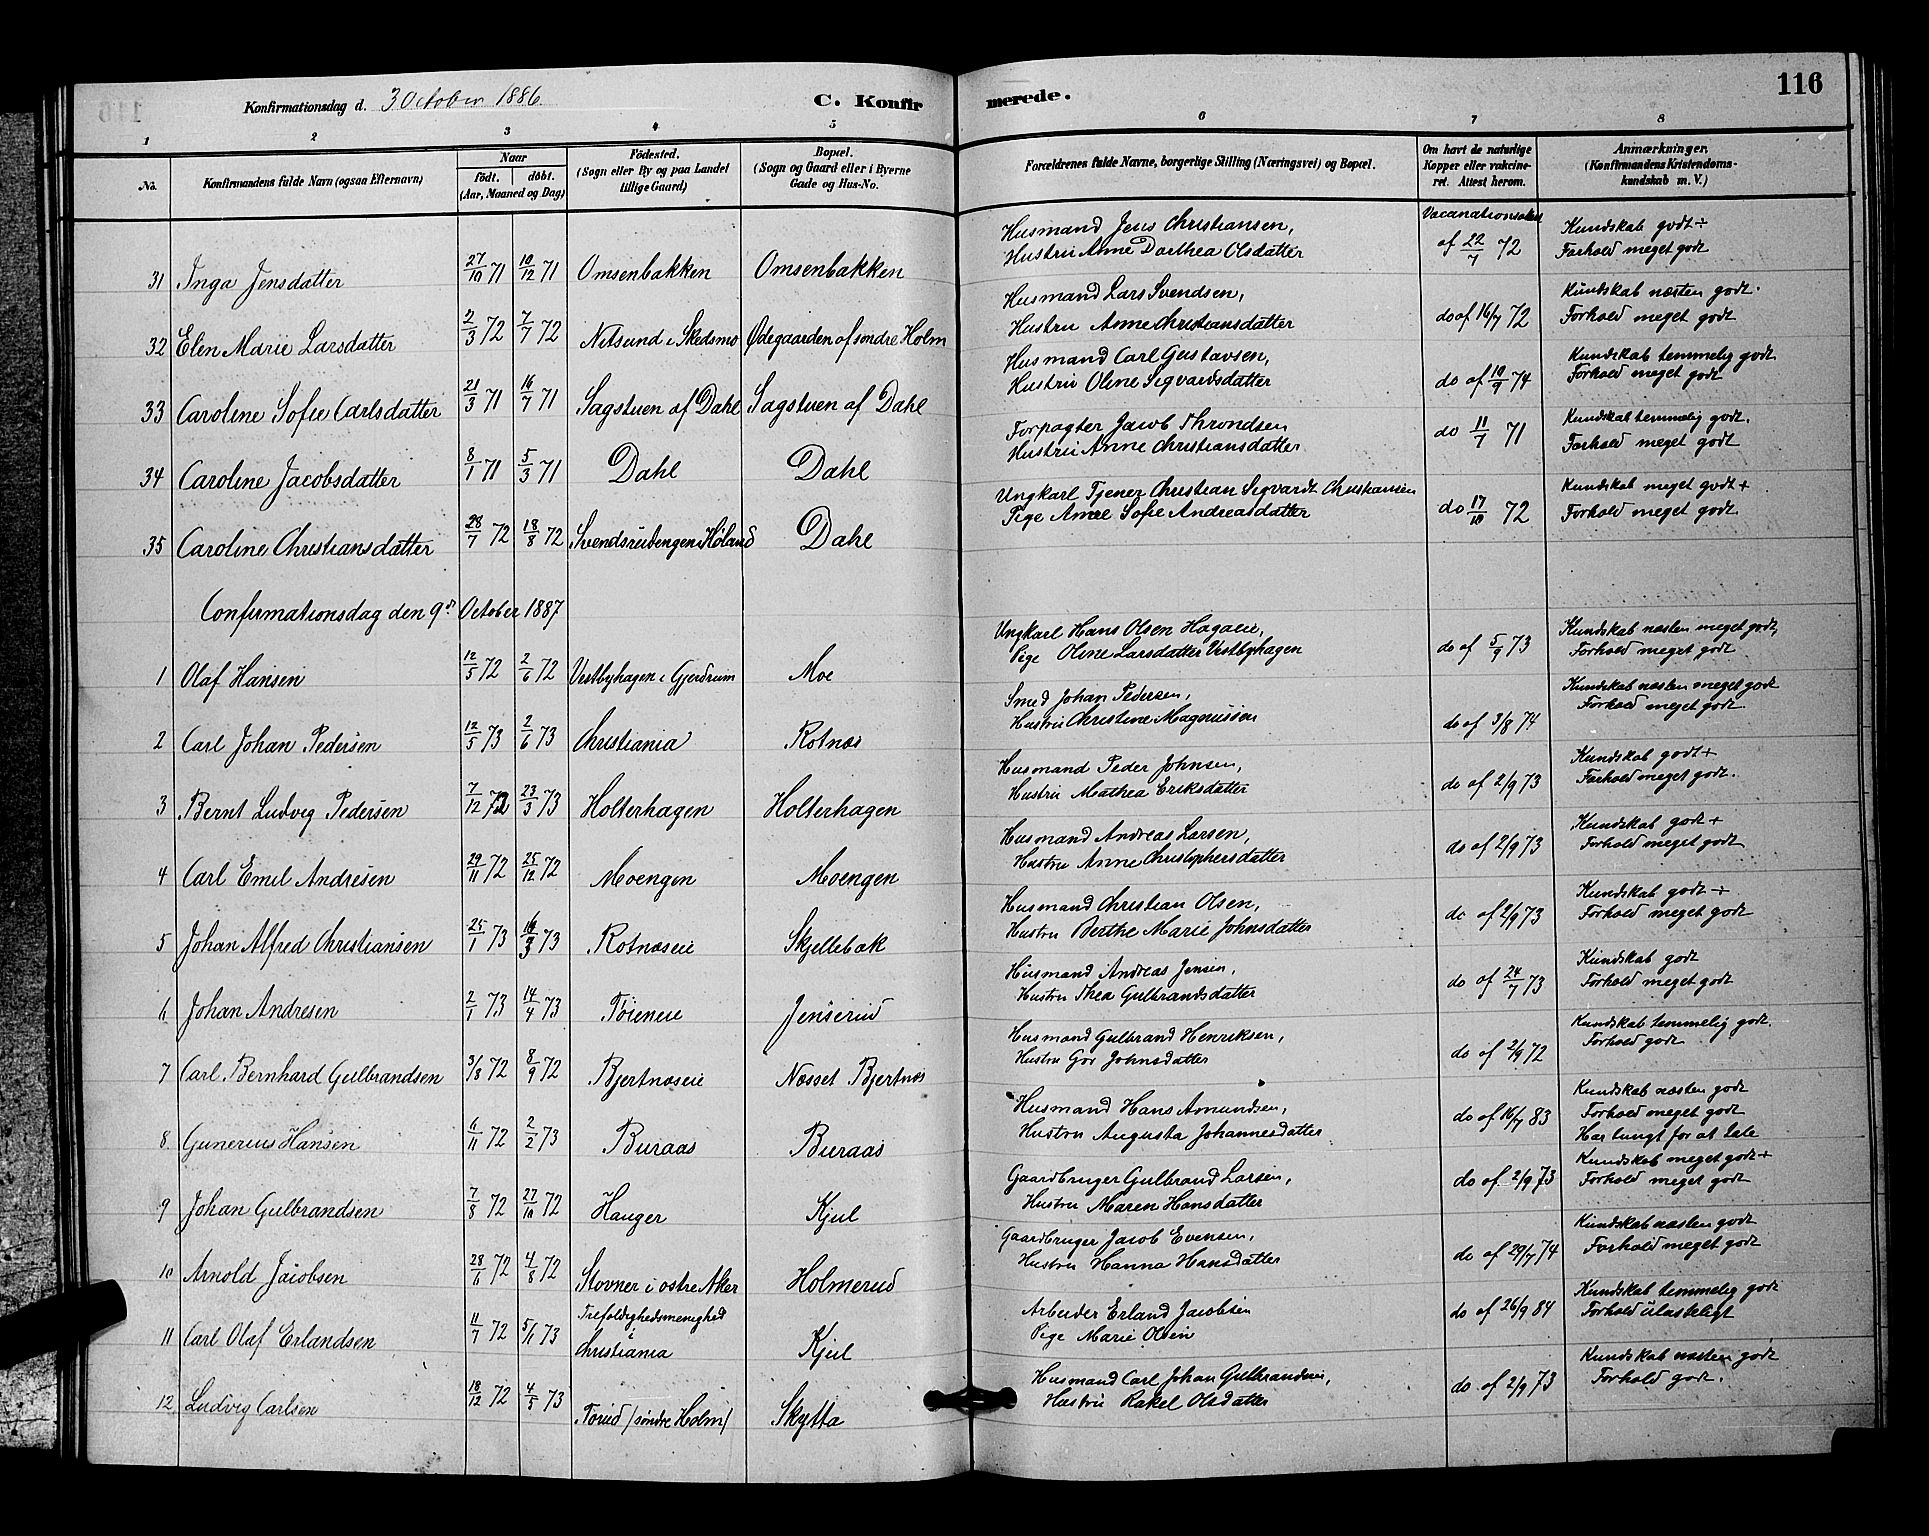 Konfirmationsdag d. 3 October 1886.
C. Konfirmerede.
116
1 2 3 4 5 6 7 8
No.
Konfirmandens fulde Navn (ogsaa Efternavn)
Naar
født. døbt.
(Aar, Maaned og Dag)
Fødested.
(Sogn eller By og paa Landet
tillige Gaard)
Bopæl.
(Sogn og Gaard eller i Byerne
Gade og Hus-No.
Forældrenes fulde Navne, borgerlige Stilling (Næringsvei) og Bopæl.
Om havt de naturlige
Kopper eller vakcine-
ret. Attest herom.
Anmærkninger.
(Konfirmandens Kristendoms-
kundskab m. V.)
31 Inga Jensdatter 27/10 71 10/12 71 Omsenbakken Omsenbakken
Husmand Jens Christiansen,
Hustru Anne Dorthea Olsdatter
af 22/7 72
Kundskab godt +
Forhold meget godt
32 Elen Marie Larsdatter 2/3 72 7/7 72 Nitsund i Skedsmo Ødegaarden af søndre Holm
Husmand Lars Svendsen,
Hustru Anne Christiansdatter
do af 16/7 72
Kundskab næsten godt.
Forhold meget godt
33 Caroline Sofie Carlsdatter 21/3 71 16/7 71 Sagstuen af Dahl Sagstuen af Dahl
Husmand Carl Gustavsen,
Hustru Oline Sigvardsdatter
do af 10/9 74
Kundskab temmelig godt
Forhold meget godt
34 Caroline Jacobsdatter 8/1 71 5/3 71 Dahl Dahl
Forpagter Jacob Throndsen
Hustru Anne Christiansdatter
do 11/7 71
Kundskab temmelig godt.
Forhold meget godt
35 Caroline Christiansdatter 28/7 72 18/8 72 Svendsrudengen i Høland Dahl
Ungkarl Tjener Christian Sigvardt Christiansen
Pige Anne Sofie Andreasdatter
do 17/10 72
Kundskab meget godt +
Forhold meget godt.
Confirmationsdag den 9de October 1887
1 Olaf Hansen 12/5 72 2/6 72 Vestbyhagen i Gjerdrum Moe
Ungkarl Hans Olsen
Pige Oline Larsdatter Vestbyhagen
do af 5/9 73
Kundskab næsten meget godt,
Forhold meget godt
2 Carl Johan Pedersen 12/5 73 2/6 73 Christiania Rotnæs
Smed Johan Pedersen,
Hustru Christine Magnussen
do af 3/8 74
Kundskab næsten meget godt
Forhold meget godt
3 Bernt Ludvig Pedersen 7/12 72 23/3 73 Holterhagen Holterhagen
Husmand Peder Johnsen,
Hustru Mathea Eriksdatter
do af 2/9 73
Kundskab godt +
Forhold meget godt.
4 Carl Emil Andresen 29/11 72 25/12 72 Moengen Moengen
Husmand Andreas Larsen,
Hustru Anne Christophersdatter
do af 2/9 73
Kundskab godt +
Forhold meget godt
5 Johan Alfred Christiansen 25/1 73 73 Rotnæseie Skjellebæk
Husmand Christian Olsen,
Hustru Berthe Marie Johnsdatter
do af 2/9 73
Kundskab godt +
Forhold meget godt
6 Johan Andresen 2/1 73 14/4 73 Tøieneie Jenserud
Husmand Andreas Jensen,
Hustru Thea Gulbrandsdatter
do af 24/7 73
Kundskab godt
Forhold meget godt
7 Carl Bernhard Gulbrandsen 3/8 72 8/9 72 Bjertnæseie Næsset Bjertnæs
Husmand Gulbrand Henriksen,
Hustru Gor Johnsdatter
do af 2/9 72
Kundskab temmelig godt.
Forhold godt
8 Gunerius Hansen 6/11 72 2/2 73 Buraas Buraas
Husmand Hans Amundsen,
Hustru Augusta Johannesdatter
do af 16/7 83
Kundskab næsten godt
Forhold meget godt
Har tungt for at tale
9 Johan Gulbrandsen 7/8 72 27/10 72 Hauger Kjul
Gaardbruger Gulbrand Larsen,
Hustru Maren Hansdatter
do af 2/9 73
Kundskab meget godt +
Forhold meget godt
10 Arnold Jacobsen 28/6 72 4/8 72 Stovner i østre Aker Holmerud
Gaardbruger Jacob Evensen,
Hustru Hanna Hansdatter
do af 29/7 74
Kundskab næsten godt
Forhold meget godt
11 Carl Olaf Erlandsen 11/7 72 5/1 73 Trefoldighedsmenighed
i
Christiania Kjul
Arbeider Erland Jacobsen
Pige Marie Olsen
do af 26/9 84
Kundskab temmelig godt
Forhold ulasteligt
12 Ludvig Carlsen 18/12 72 4/5 73 Torud (søndre Holm) Skytta
Husmand Carl Johan Gulbrandsen,
Hustru Rakel Olsdatter
do af 2/9 73
Kundskab næsten godt
Forhold godt.